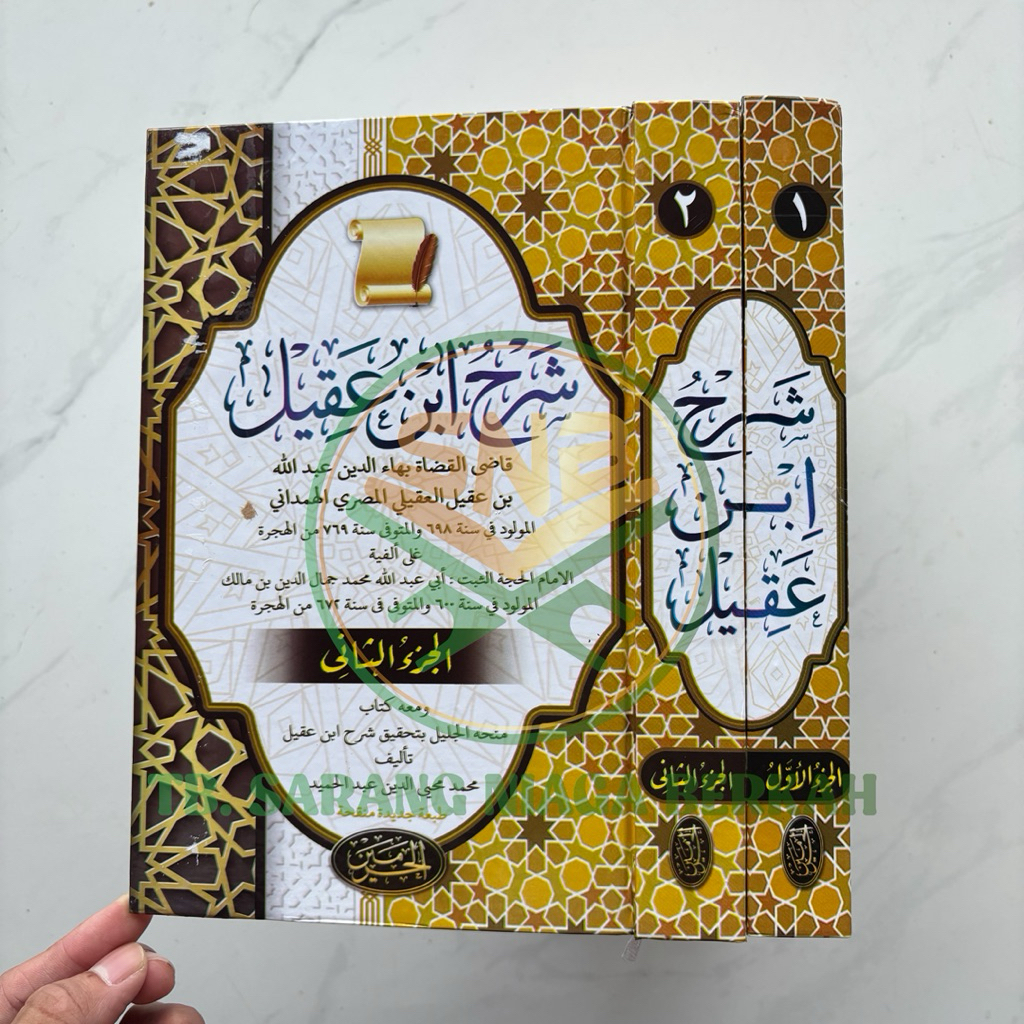 شَرْحُ ابْنِ عَقِيْل
قاضى القضاة بهاء الدين عبد الله
بن عقيل العقيلي المصري الهمداني
المولود في سنة ٦٩٨ والمتوفى سنة ٧٦٩ من الهجرة
على ألفية
الامام الحجة الثبت : أبي عبد الله محمد جمال الدين بن مالك
المولود في سنة ٦٠٠ والمتوفى فى سنة ٦٧٢ من الهجرة
الجزء الثانى
ومعه كتاب
منحة الجليل بتحقيق شرح ابن عقيل
تأليف
محمد محيي الدين عبد الحميد
طبعة جديدة منقحة
الحرمين
٢
١
شَرْحُ
اِبْنِ
عَقِيْل
الجزء الأوّل
الجزء الثانى
الحرمين
الحرمين
SNB
TB. SARANG NIAGA BERKAH